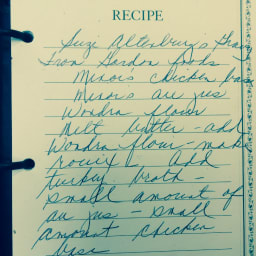 RECIPE
Suze Altenburg's Gravy
From Gordon foods
Minor's chicken base
Minor's au jus
Wondra flour
Melt butter - add
Wondra flour - make
rouix - Add
turkey broth -
small amount of
au jus - small
amount chicken
base